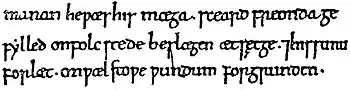 manan heƿæs his mæga. sceard freonda ge
fylled onfolc stede beslægen ætsæcge. ⁊his sunu
forlæt. onƿæl stoƿe ƿundum forgrunden.